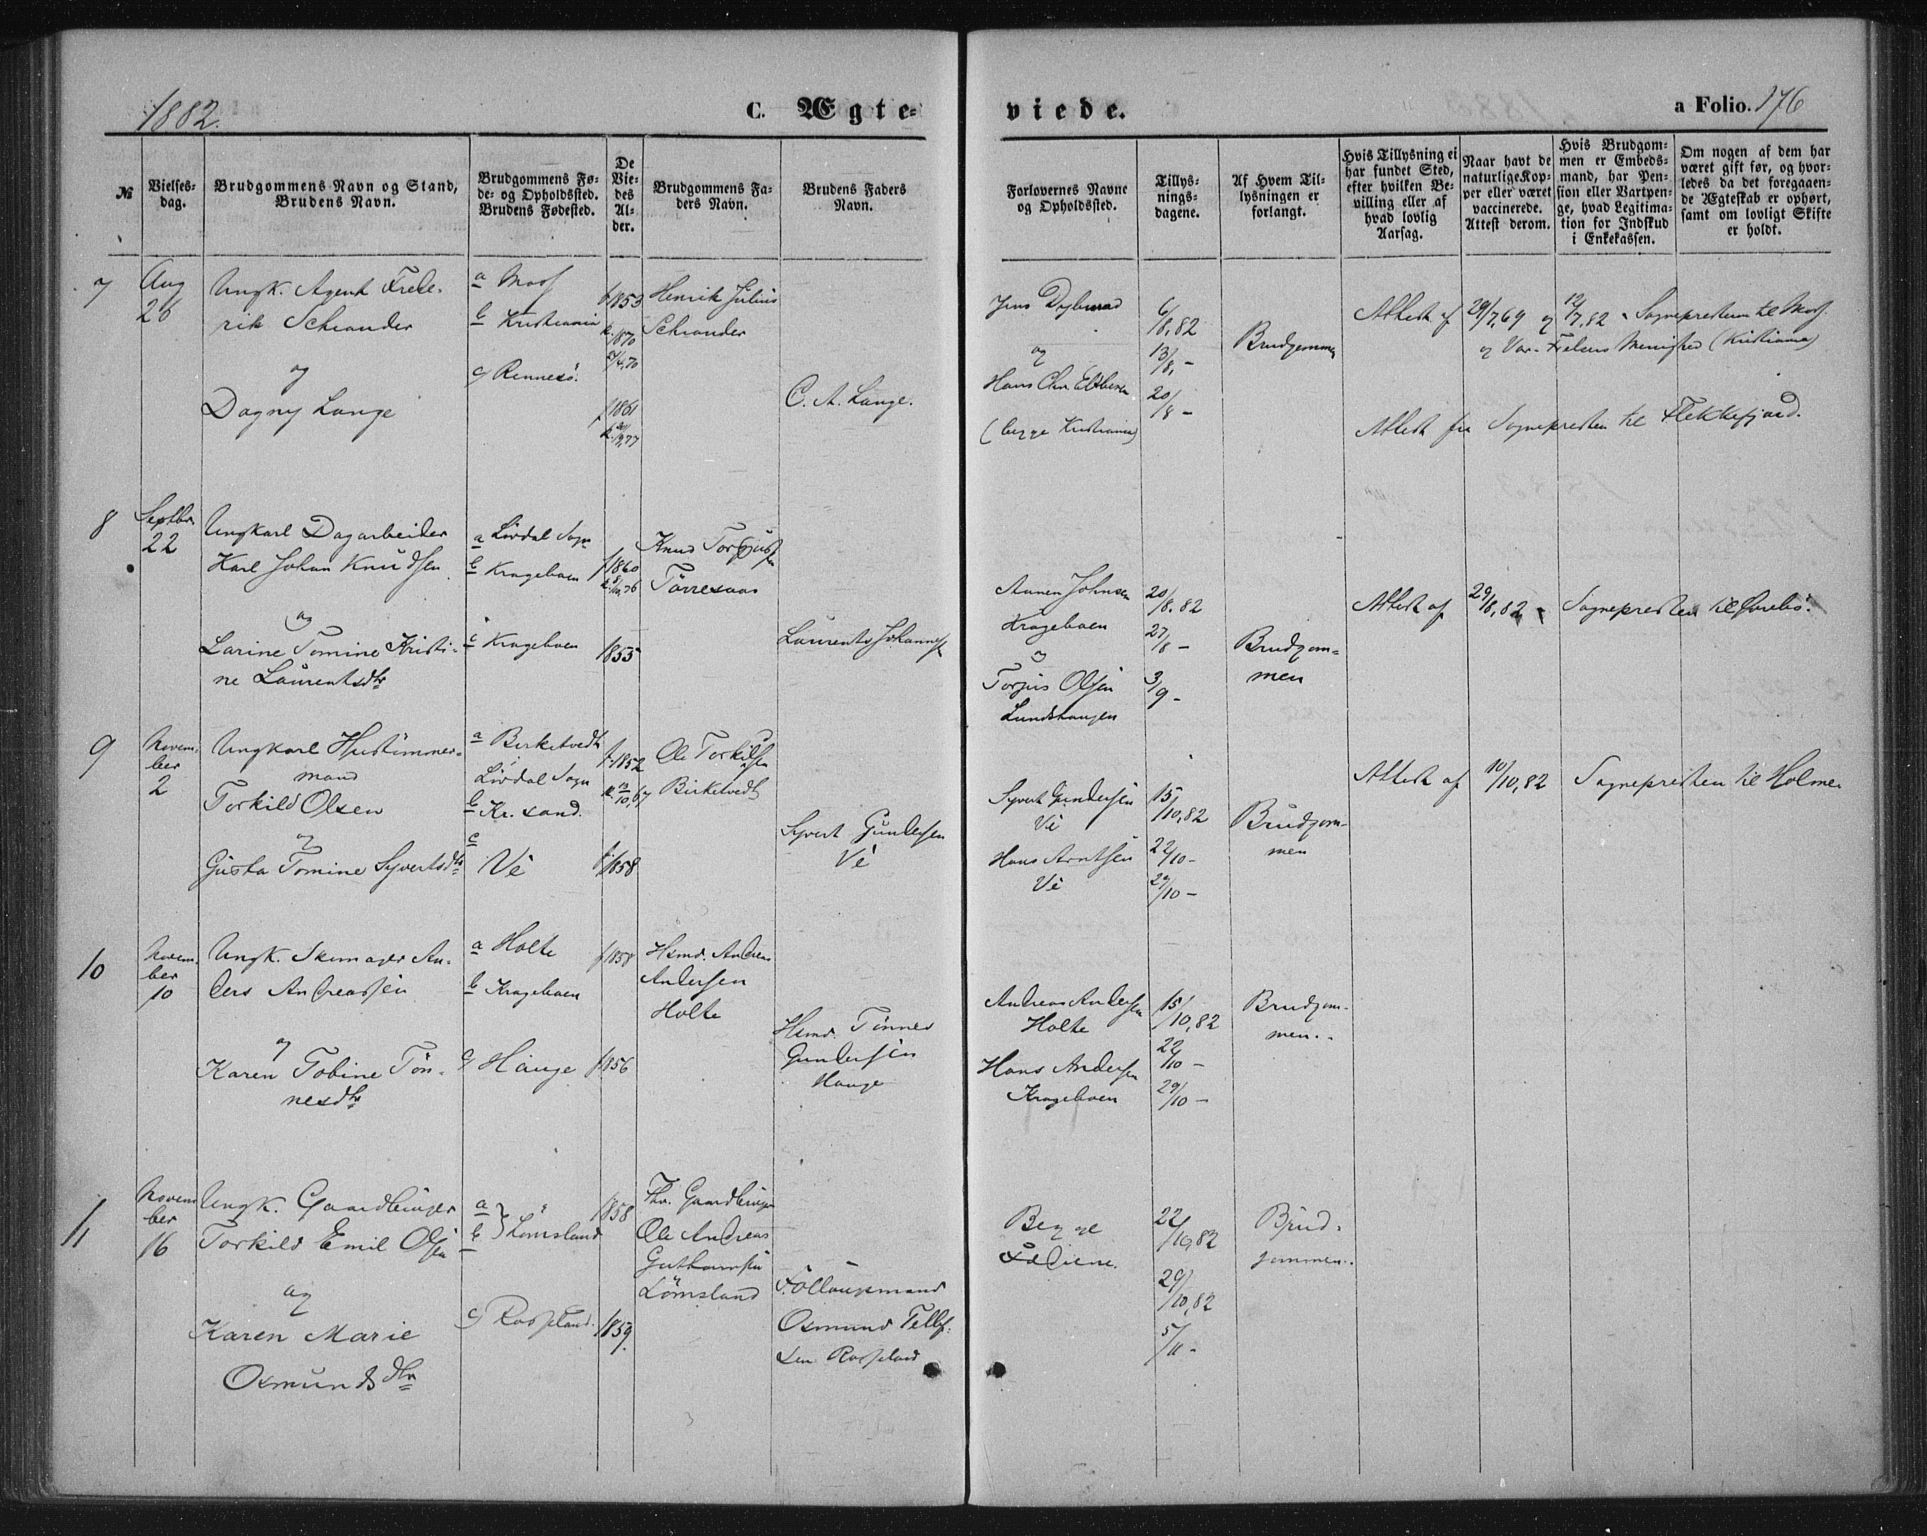 1882.
C. Ægte-
viede.
a Folio. 176
№
Vielses-
dag.
Brudgommens Navn og Stand,
Brudens Navn.
Brudgommens Fø-
de- og Opholdssted.
Brudens Fødested.
De
Vie-
des
Al-
der.
Brudgommens Fa-
ders Navn.
Brudens Faders
Navn.
Forlovernes Navne
og Opholdssted.
Tillys-
nings-
dagene.
Af Hvem Til-
lysningen er
forlangt.
Hvis Tillysning ei
har fundet Sted,
efter hvilken Be-
villing eller af
hvad lovlig
Aarsag.
Naar havt de
naturlige Kop-
per eller været
vaccinerede.
Attest derom.
Hvis Brudgom-
men er Embeds-
mand, har Pen-
sion eller Vartpen-
ge, hvad Legitima-
tion for Indskud
i Enkekassen.
Om nogen af dem har
været gift før, og hvor-
ledes da det foregaaen-
de Ægteskab er ophørt,
samt om lovligt Skifte
er holdt.
7
Aug
26
Ungk. Agent Frede-
rik Schrander
og
Dagny Lange
a Moss
b Kristiania
c Rennesø.
f 1853
k. 1870
f 1861
Henrik Julius
Schrander
C. A. Lange.
Jens
og
Hans Chr
(begge Kristiania)
6/8,82
13/8,-
20/8 -
Brudgommen
Attest af 29/7,69 og 12/7,82 Sognepresten til Moss
og Vor Frelsers Menighed (Kristiania)
Attest fra Sognepresten til Flekkefjord.
8
Septbr.
22
Ungkarl Dagarbeider
Karl Johan Knudsen
og
Larine Tomine Kristi-
ne Laurentsdtr
a Løvdal Sogn
b Krageboen
c Krageboen
f 1860
f 1855
Knud Torgius
Tørresaas
Laurents Johannes
Aanen Johnsen
Krageboen
og
Torjus Olsen
Lundshaugen
20/8.82
27/8 -
3/9 -
Brudgom=
men
Attest af 29/8,82 Sognepresten til
9
Novem-
ber
2
Ungkarl Hustømmer-
mand
Torkild Olsen
og
Gusta Tomine Syvertsdtr
a Birketvedt
Løvdal Sogn
b Kr.sand.
c
Ve
f 1852
f 1858
Ole Torkilsen
Birketvedt
Syvert Gundersen
Ve
Syvert Gundersen
Ve
Hans Arntsen
Ve
15/10,82
22/10 -
29/10 -
Brudgom-
men
Attest af 10/10,82 Sognepresten til Holme
10
Novem-
ber
10
Ungk. Skomager An-
ders Andreassen
og
Karen Tobine Tøn-
nesdtr
a Holte
b Krageboen
c Hauge
f 1858
f 1856
Hsmd. Andreas
Andersen
Holte
Hsmd. Tønnes
Gundersen
Hauge
Andreas Andersen
Holte
Hans Andersen
Krageboen
15/10,82
22/10 -
29/10 -
Brudgom-
men.
11
Novem-
ber
16
Ungk. Gaardbruger
Torkild Emil Olsen
og
Karen Marie
Osmundsdtr
a
b } Lømsland
c Rosseland.
f 1858
f 1859.
Fhv. Gaardbruger
Ole Andreas
Guthormsen
Lømsland
Follaugsmand
Osmund Tellef-
sen Rosseland
Begge
Fædrene.
22/10,82
29/10,82
5/11 -
Brud-
gommen.